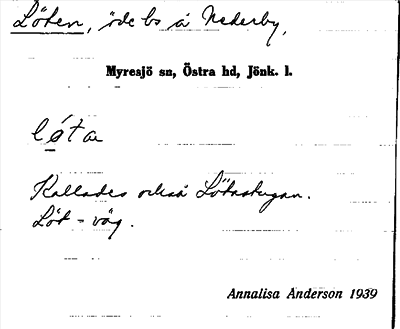 Löten, öde bs å Nederby,
Myresjö sn, Östra hd, Jönk. l.
lo̱´tæ
Kallades också Lötastugan.
Löt - väg.
Annalisa Anderson 1939